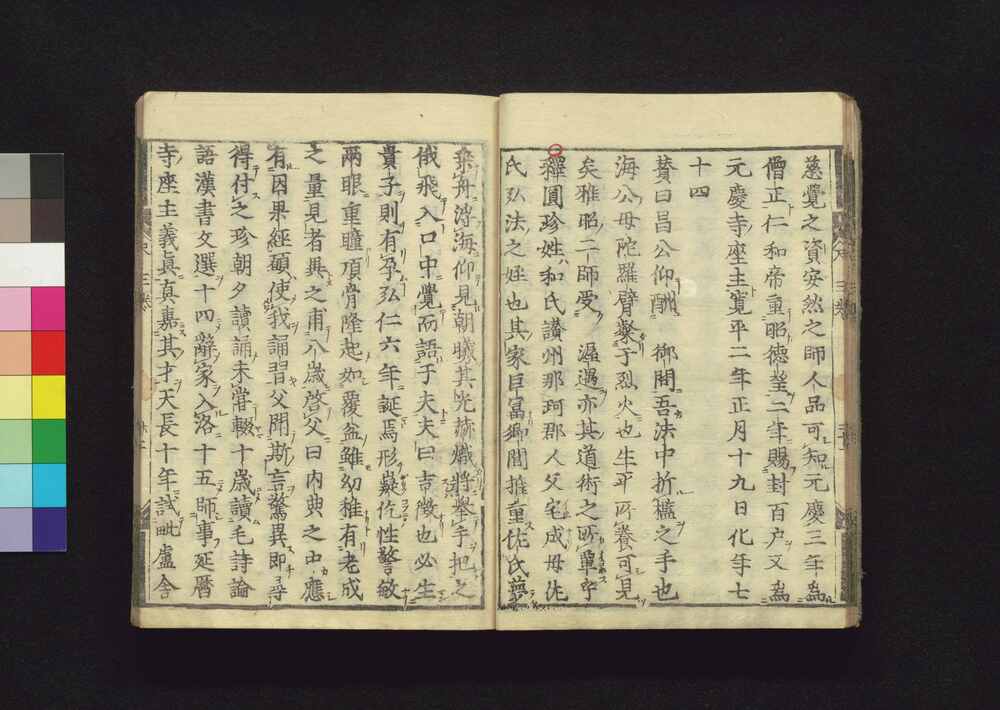 慈覺之資安然之師人品可知元慶三年為
僧正仁和帝重昭德望二年賜封百戶又為
元慶寺座主寬平二年正月十九日化年七
十四
賛曰昌公仰酬　御問吾法中折檻之手也
海公母陀羅臂爇于烈火也生平所養可見
矣雅昭二師受　渥遇亦其道術之所覃乎
釋圓珍姓和氏讃州那珂郡人父宅成母佐
氏弘法之姪也其家巨富鄉閭推重佐氏夢
乘舟浮海仰見朝曦其光赫熾將舉手把之
俄飛入口中覺而語于夫夫曰吉徵也必生
貴子則有孕弘仁六年誕焉形嶷佹性警敏
兩眼重瞳頂骨隆起如覆盆雖幼稚有老成
之量見者異之甫八歲啓父曰内典之中應
有因果經願使我誦習父聞斯言驚異即尋
得付之珍朝夕讀誦未甞輟十歲讀毛詩論
語漢書文選十四辭家入洛十五師事延曆
寺座主義真真嘉其才天長十年試毗盧舍